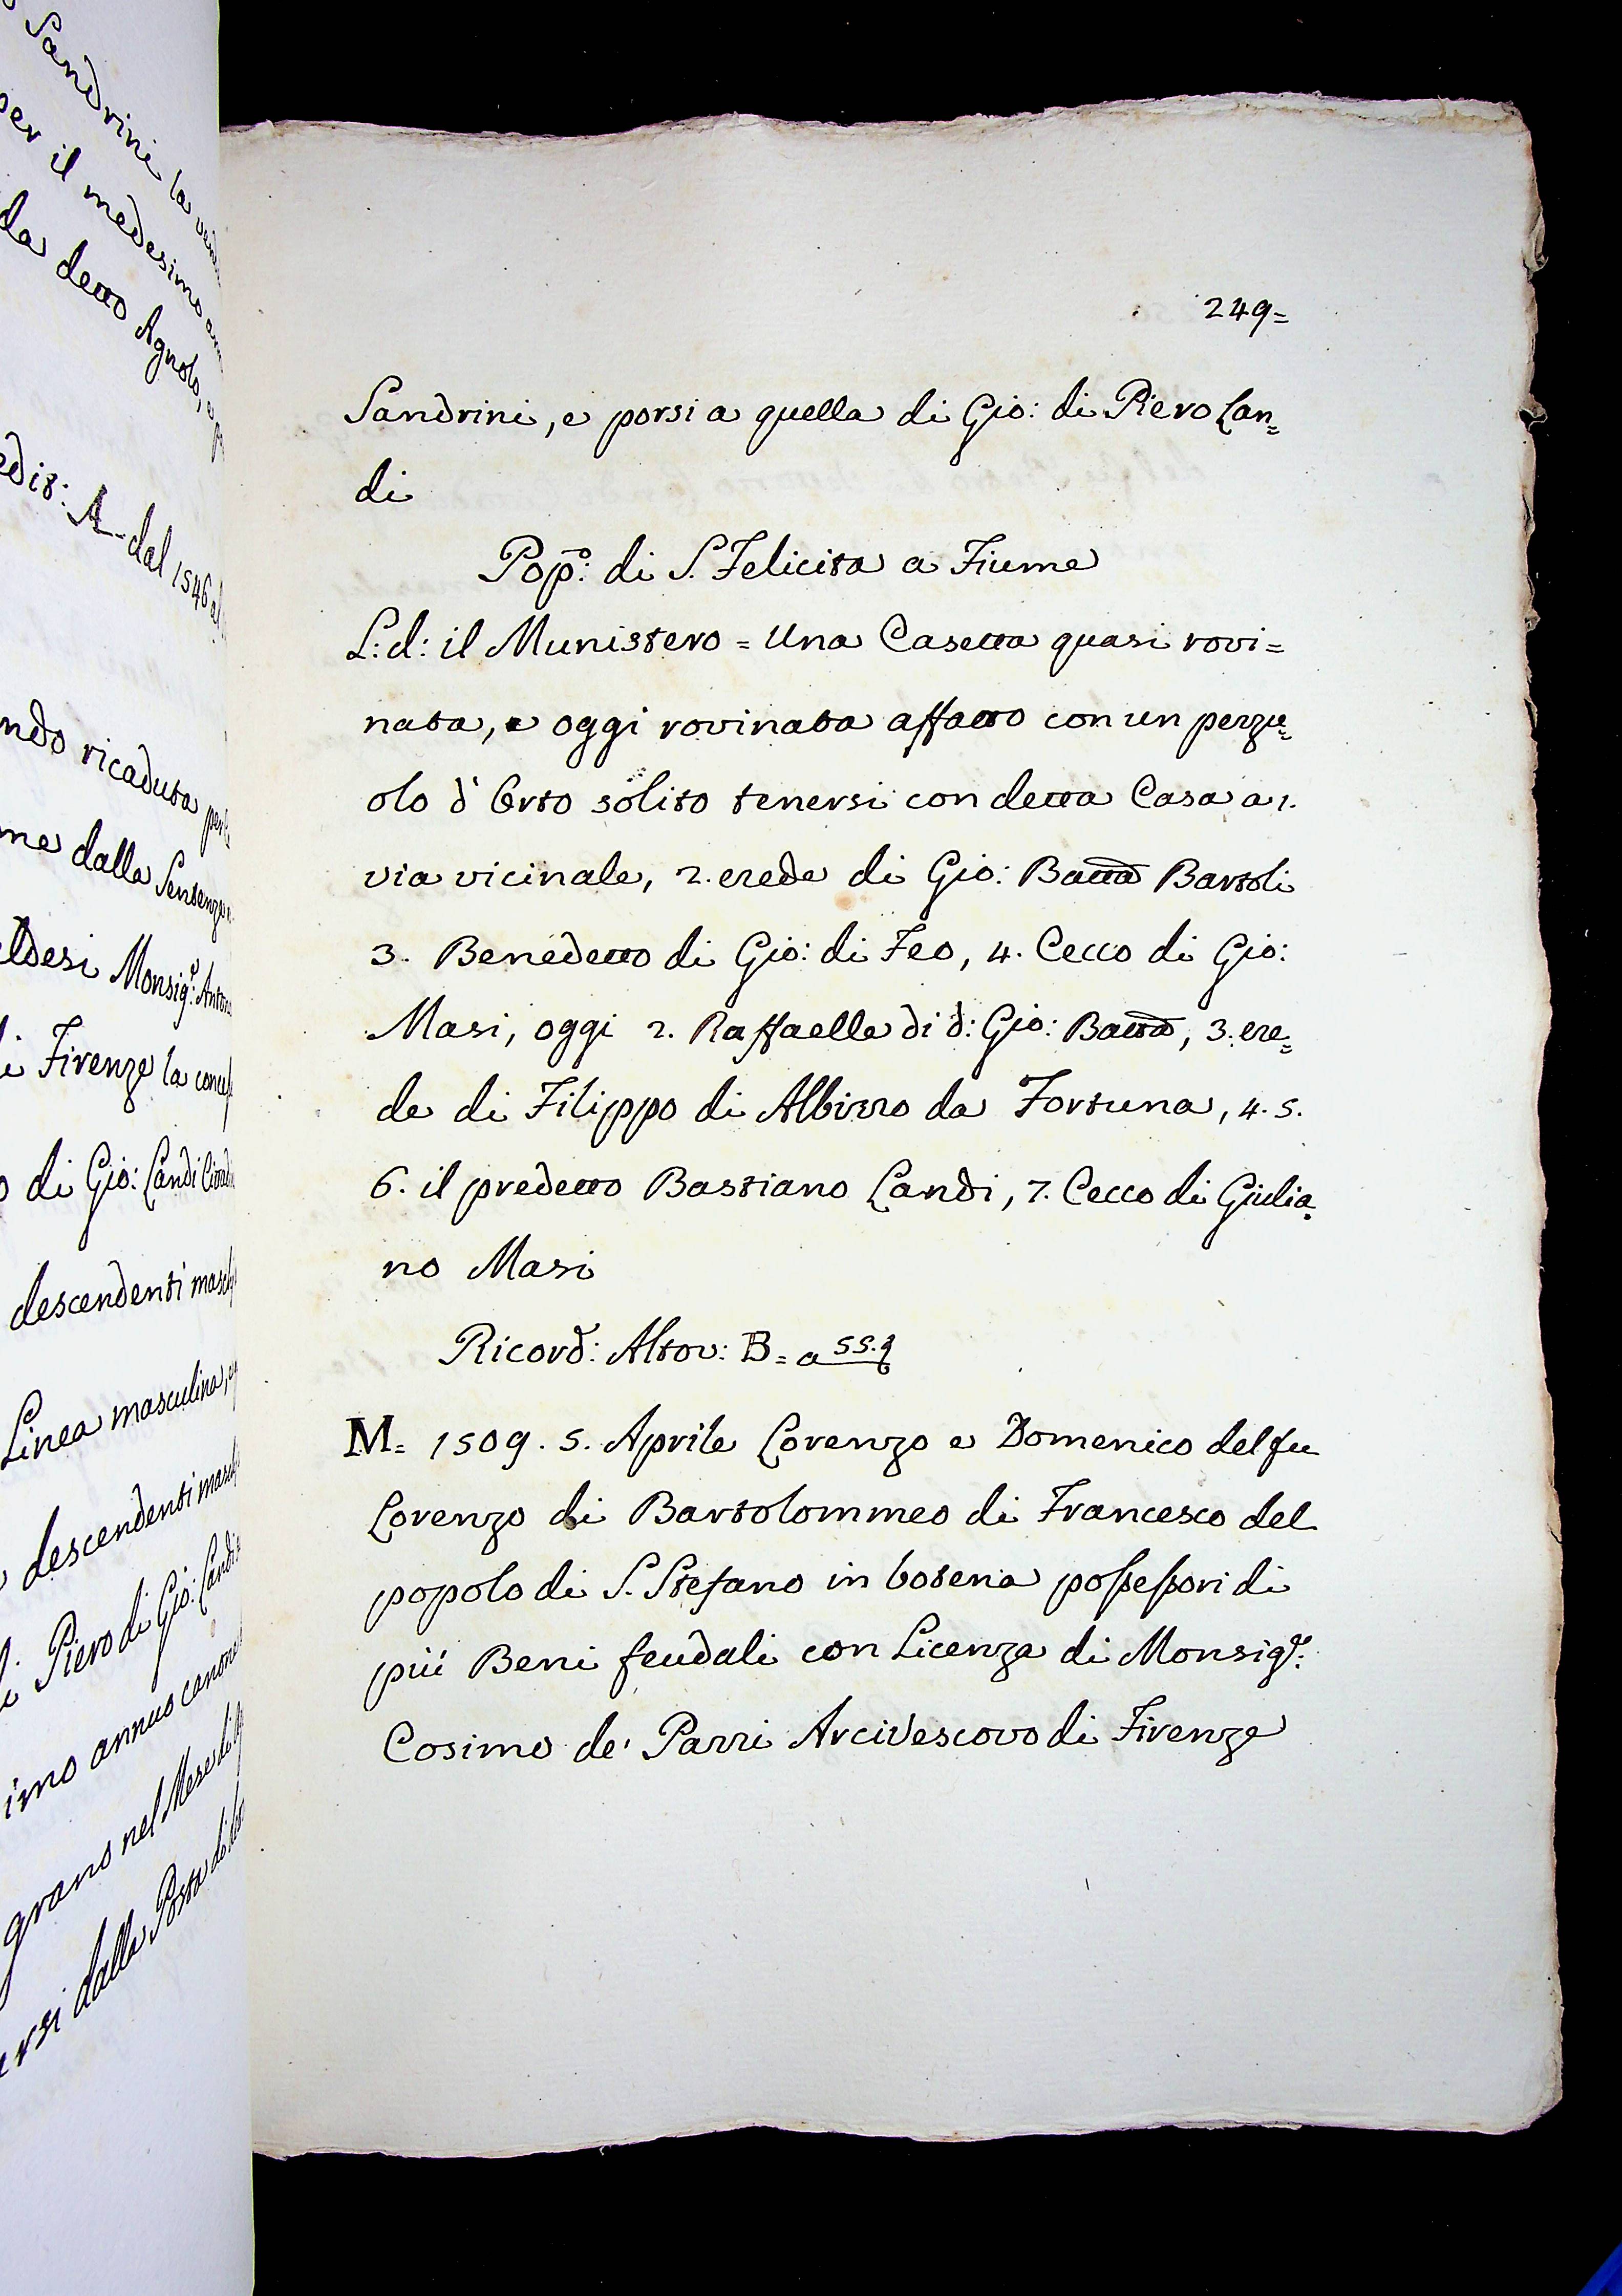 Sandrini la
per il medesimo
da detto Agnolo,
A dal 1546
ricaduta
dalla
Monsig.e
Firenze la
di Gio: Landi
descendenti
Linea masculina,
descendenti
Piero di Gio:
annuo canone
grano nel Mese di
dalla Posta di
249=
Sandrini, e porsi a quella di Gio: di Piero Lan=
di
Pop.o: di S. Felicita a Fiume
L: d: il Munistero = Una Casetta quasi rovi=
nata, e oggi rovinata affatto con un pezzu=
olo d'Orto solito tenersi con detta Casa a 1.
via vicinale, 2. erede di Gio: Batta Bartoli
3. Benedetto di Gio: di Feo, 4. Cecco di Gio:
Masi, oggi 2. Raffaelle di d: Gio: Batta, 3. ere=
de di Filippo di Albizzo da Fortuna, 4. 5.
6. il predetto Bastiano Landi, 7. Cecco di Giulia=
no Masi
Ricord: Altov: B= a 55.
M= 1509. 5. Aprile Lorenzo e Domenico del fu
Lorenzo di Bartolommeo di Francesco del
popolo di S. Stefano in botena possessori di
più Beni feudali con Licenza di Monsig.e:
Cosimo de' Pazzi Arcivescovo di Firenze